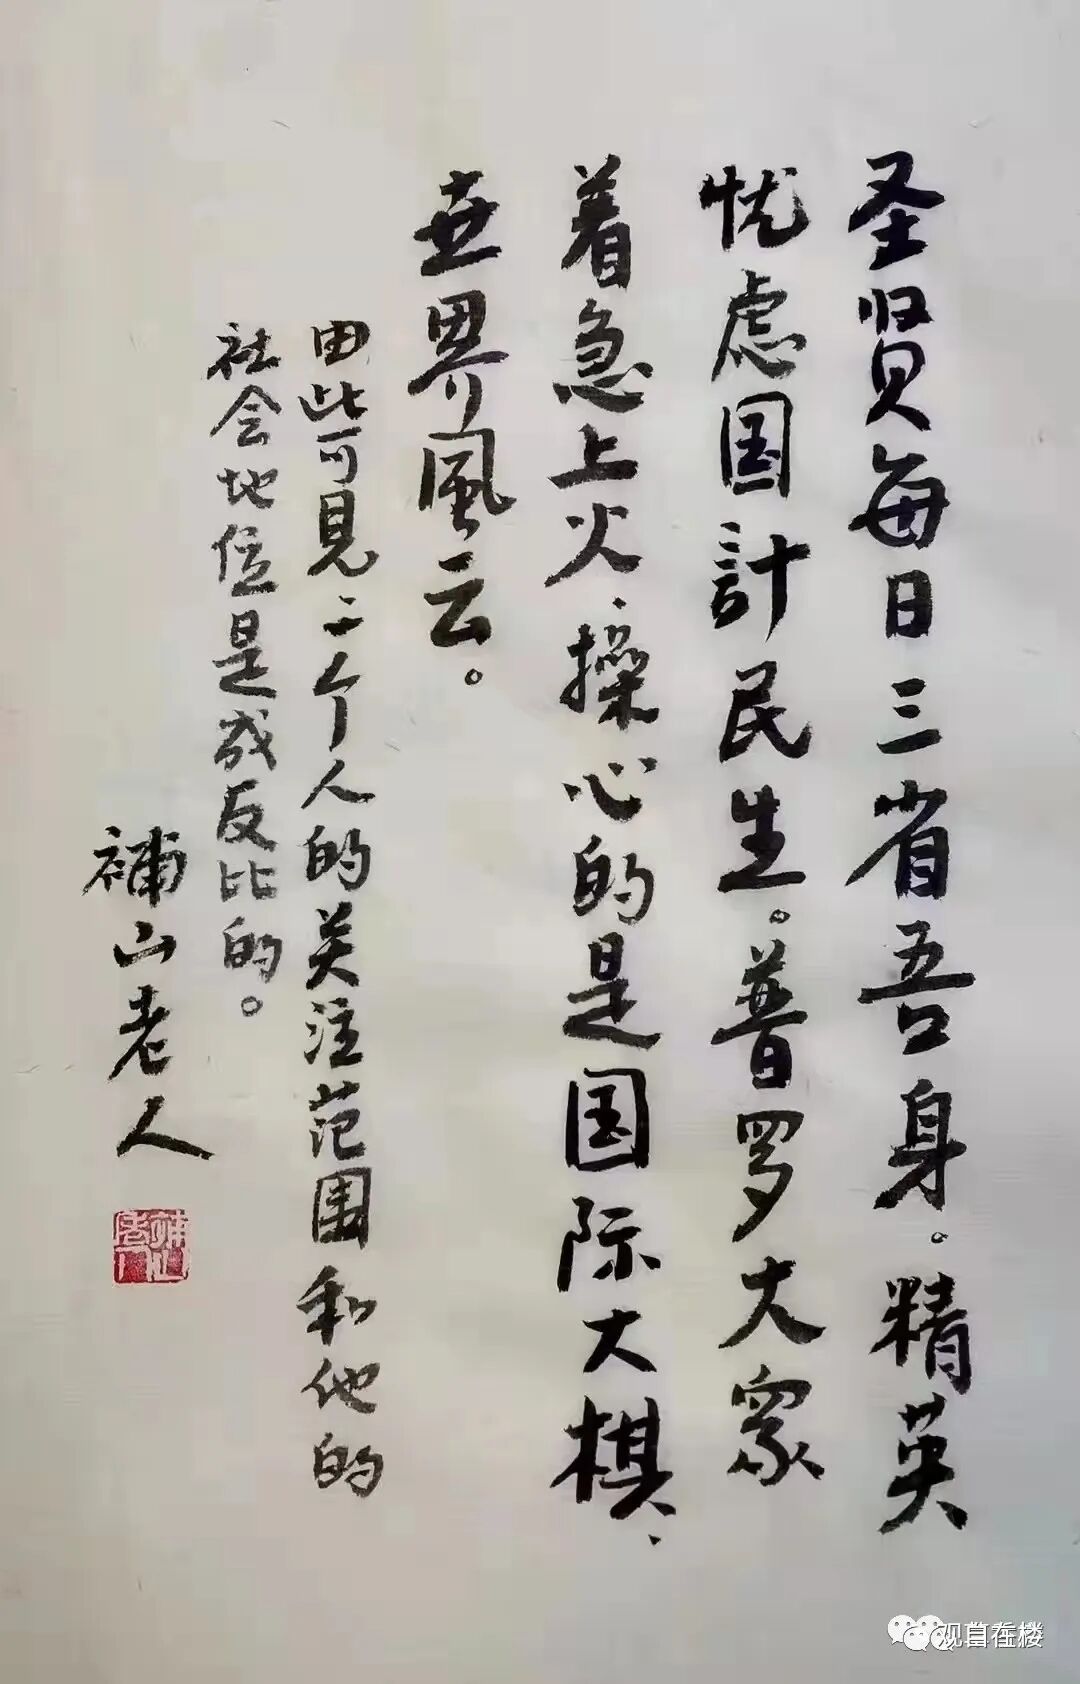 圣贤每日三省吾身。精英
忧虑国計民生。普罗大衆
着急上火、操心的是国际大棋、
世界風云。
由此可見、一个人的关注范围和他的
社会地位是成反比的。
補山老人
補山老人